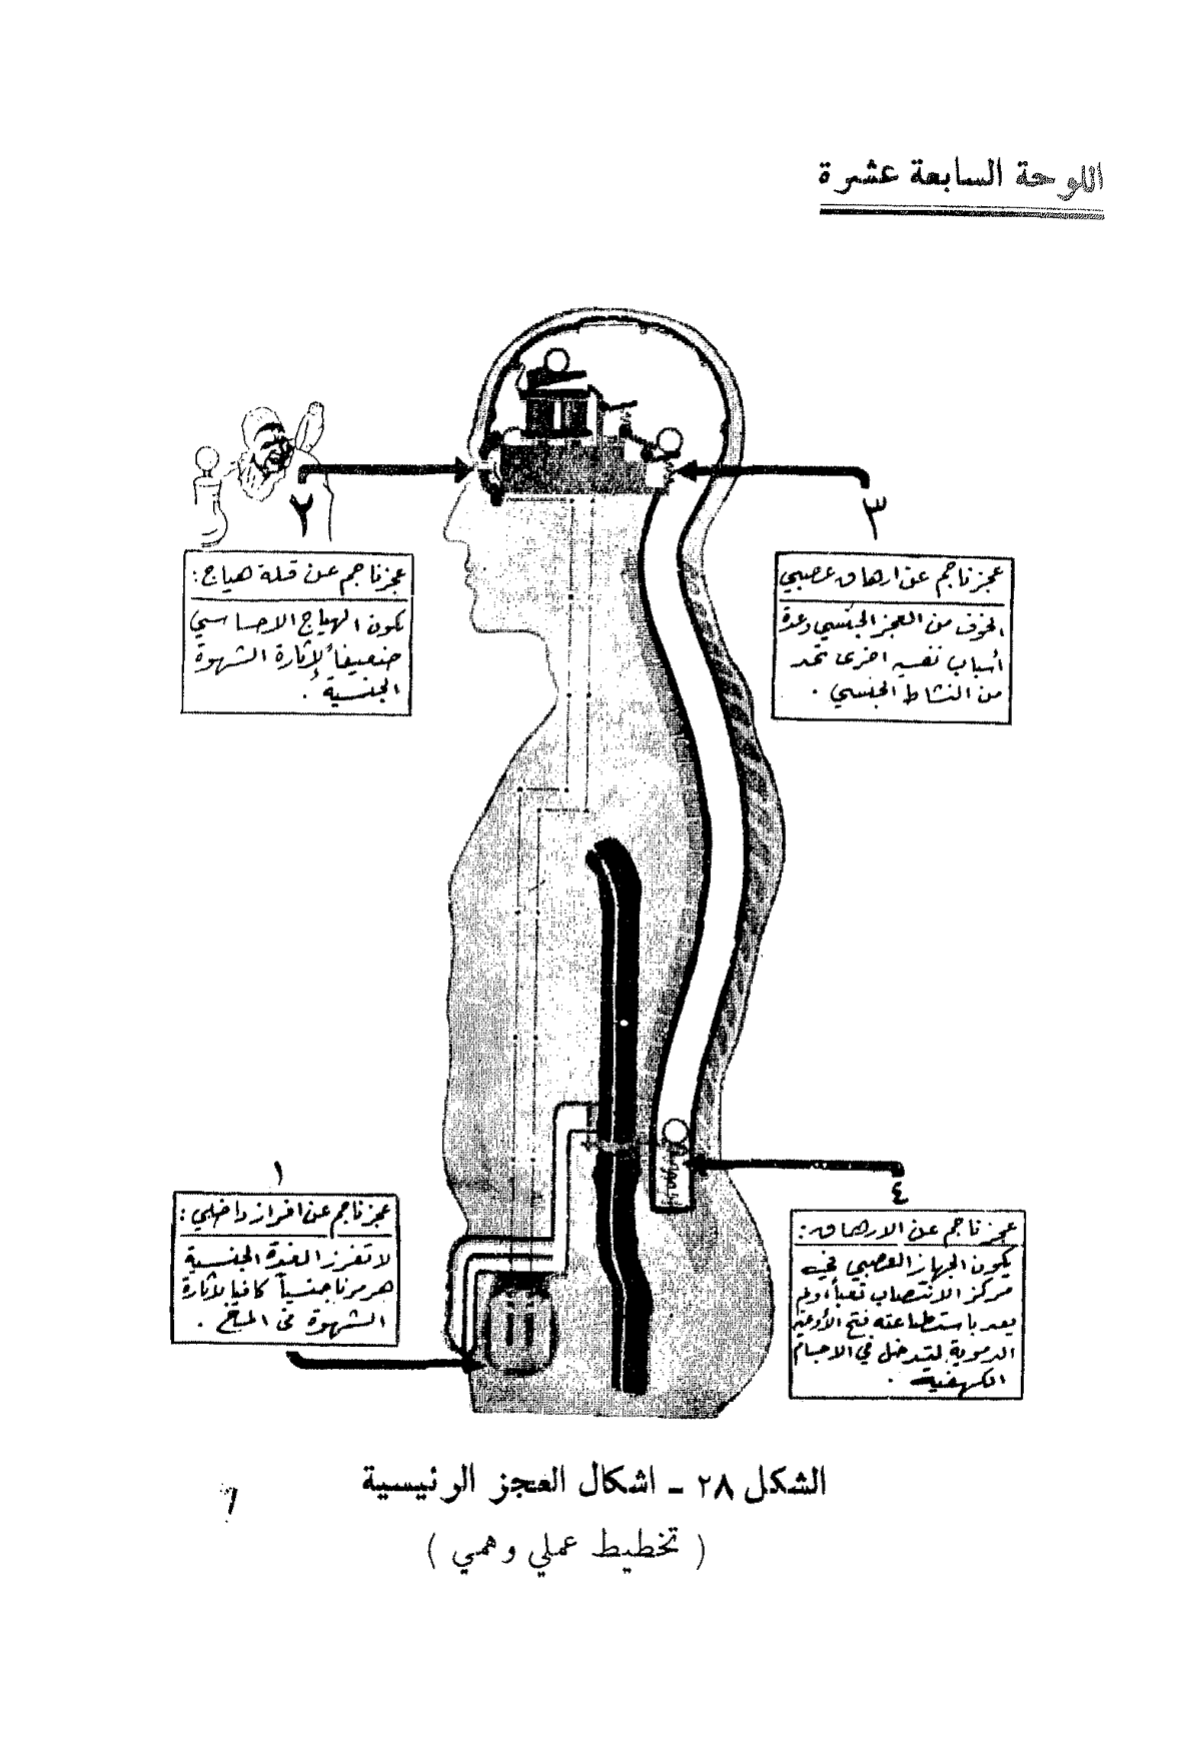 اللوحة السابعة عشرة
٢
عجز ناجم عن قلة هياج :
يكون الهياج الاحساسي
ضعيفاً لإثارة الشهوة
الجنسية .
٣
عجز ناجم عن ارهاق عصبي
الخوف من العجز الجنسي وعدة
أسباب نفسيه اخرى تحد
من النشاط الجنسي .
١
عجز ناجم عن افراز داخلي :
لا تفرز الغدة الجنسية
هرمونا جنسياً كافيا لاثارة
الشهوة في المخ .
٤
عجز ناجم عن الارهاق :
يكون الجهاز العصبي في
مركز الانتصاب تعباً أو لم
يعد باستطاعته فتح الأوعية
الدموية لتدخل في الاجسام
الكهفية .
الشكل ٢٨ - اشكال العجز الرئيسية
( تخطيط عملي وهمي )